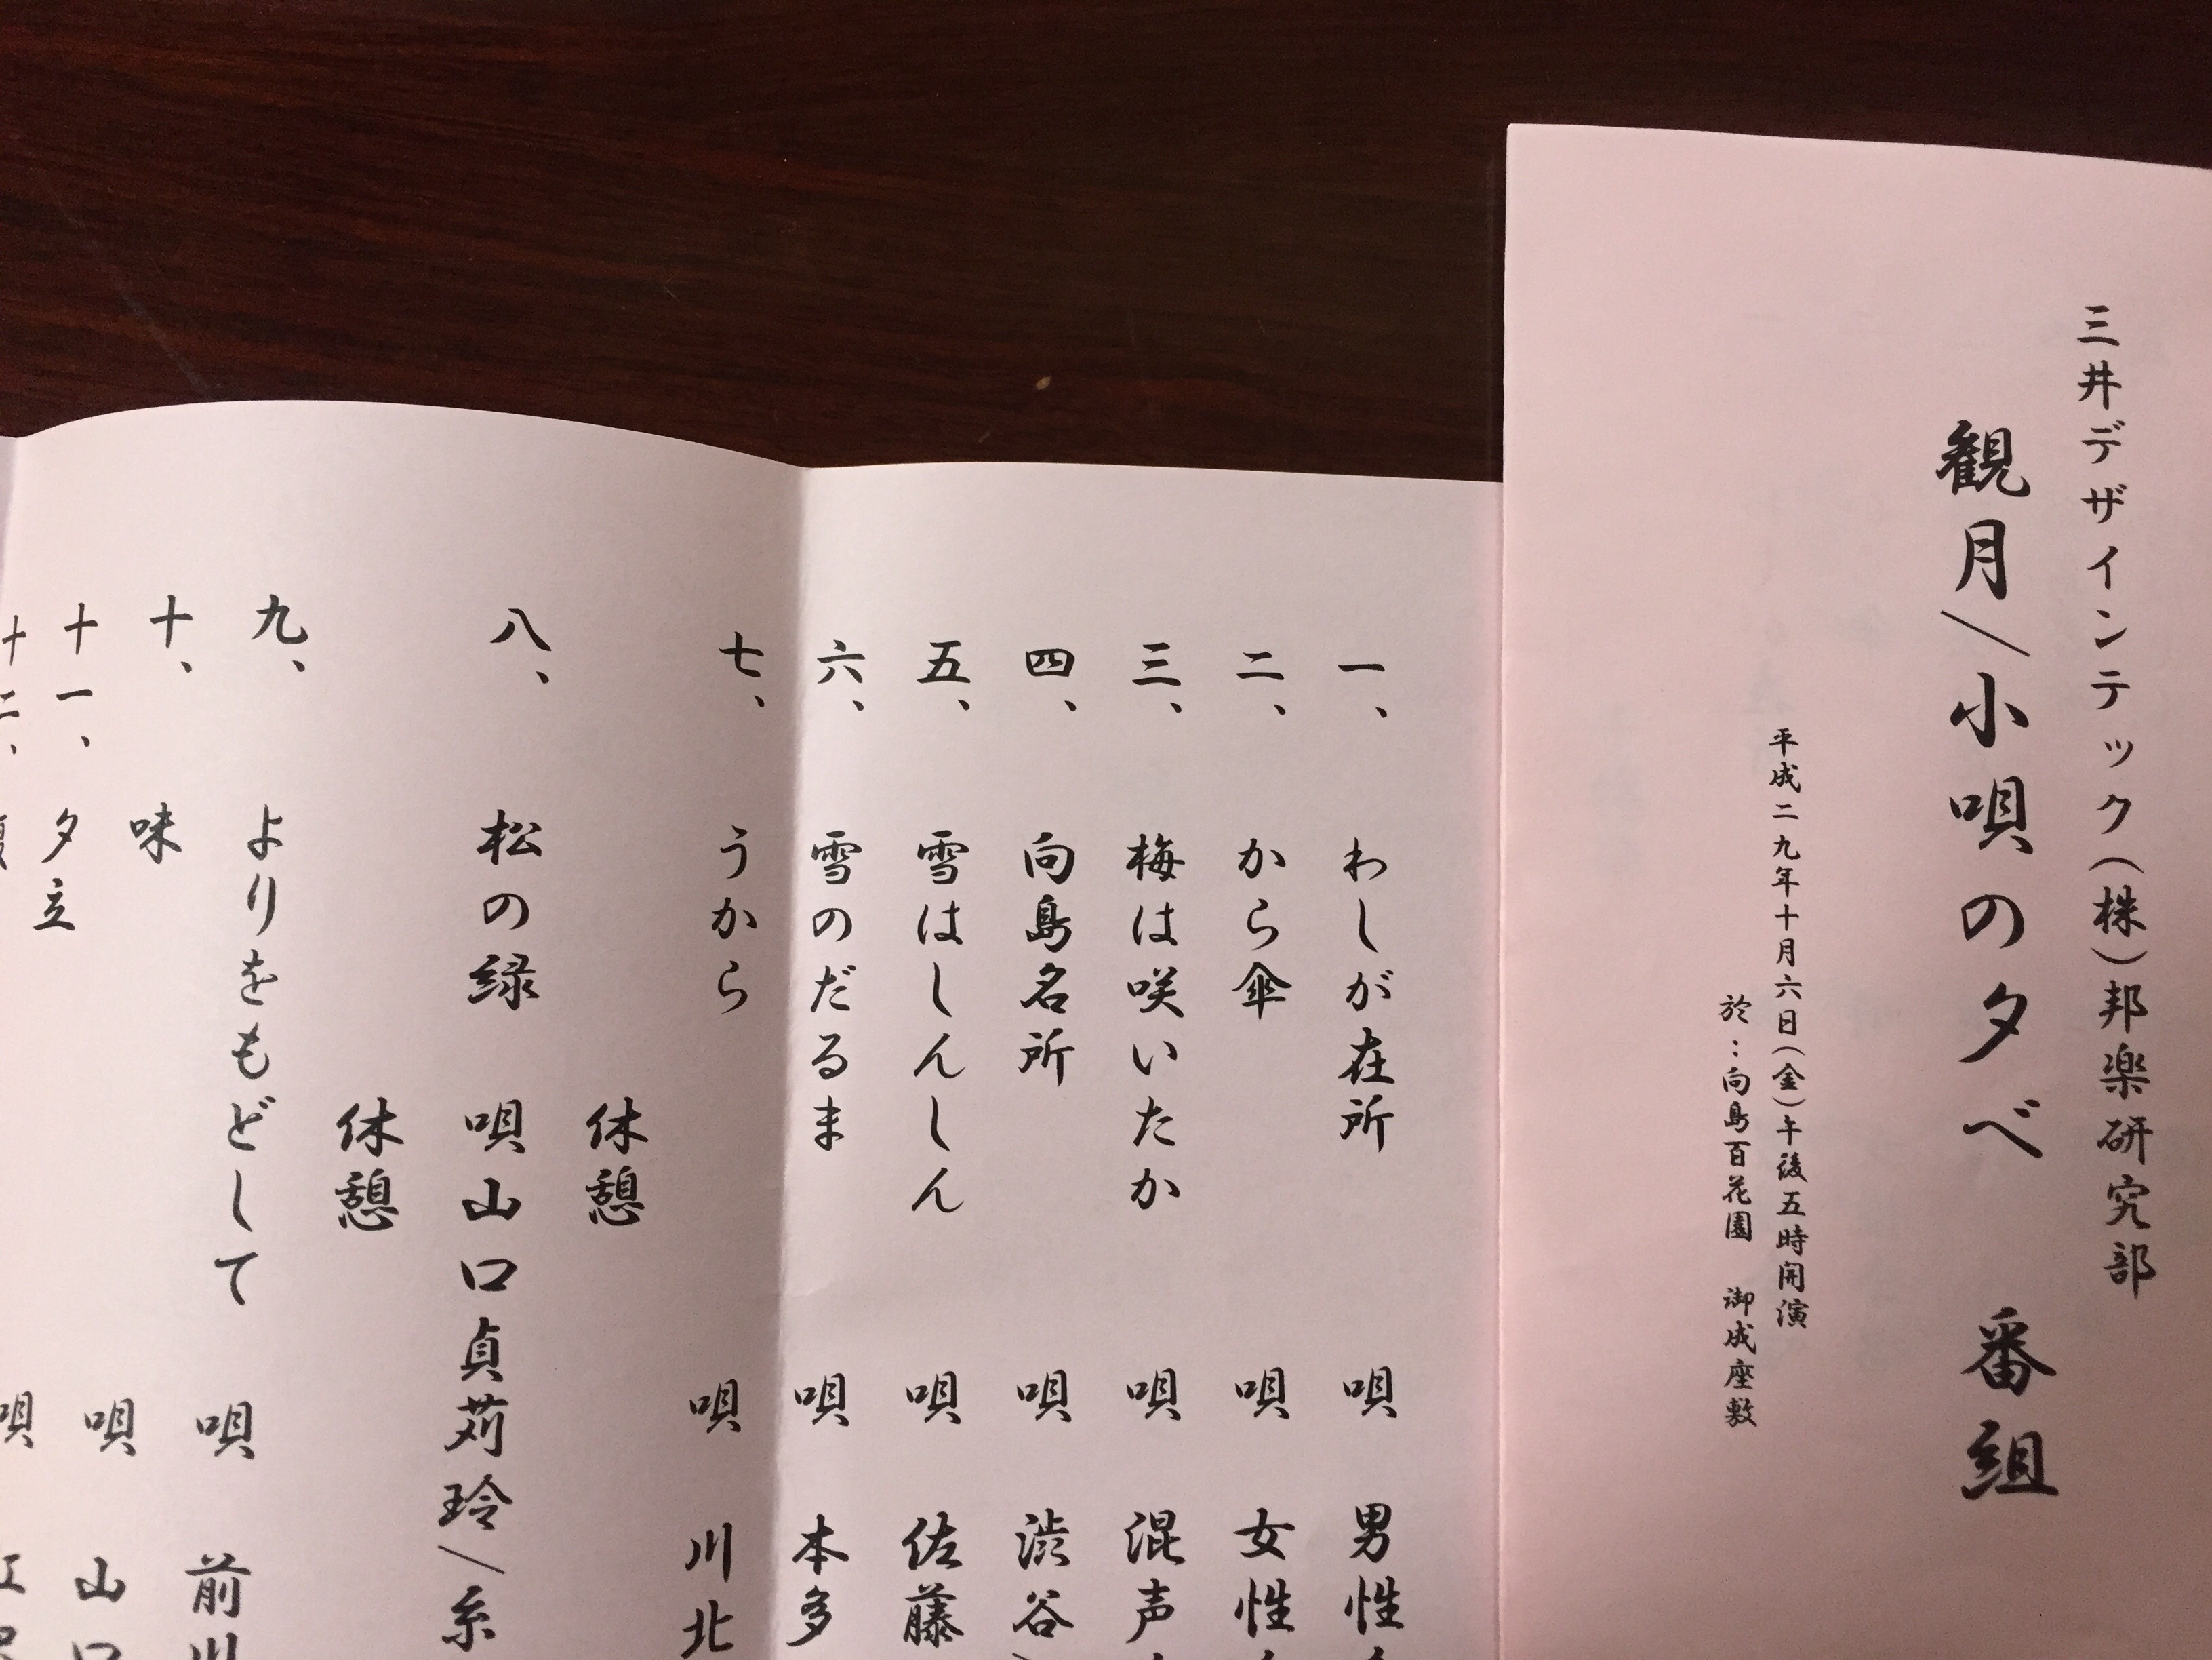 三井デザインテック(株)邦楽研究部
観月/小唄の夕べ 番組
平成二九年十月六日(金)午後五時開演
於:向島百花園 御成座敷
一、 わしが在所 唄 男性
二、 から傘 唄 女性
三、 梅は咲いたか 唄 混声
四、 向島名所 唄 渋谷
五、 雪はしんしん 唄 佐藤
六、 雪のだるま 唄 本多
七、 うから 唄 川北
休憩
八、 松の緑 唄山口貞苅玲/糸
休憩
九、 よりをもどして 唄 前川
十、 味 唄 山口
十一、 夕立 唄
十二、